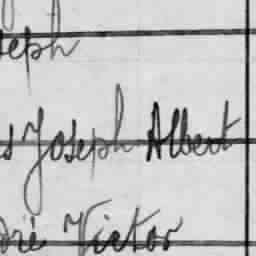 seph
s Joseph Albert
dré Victor